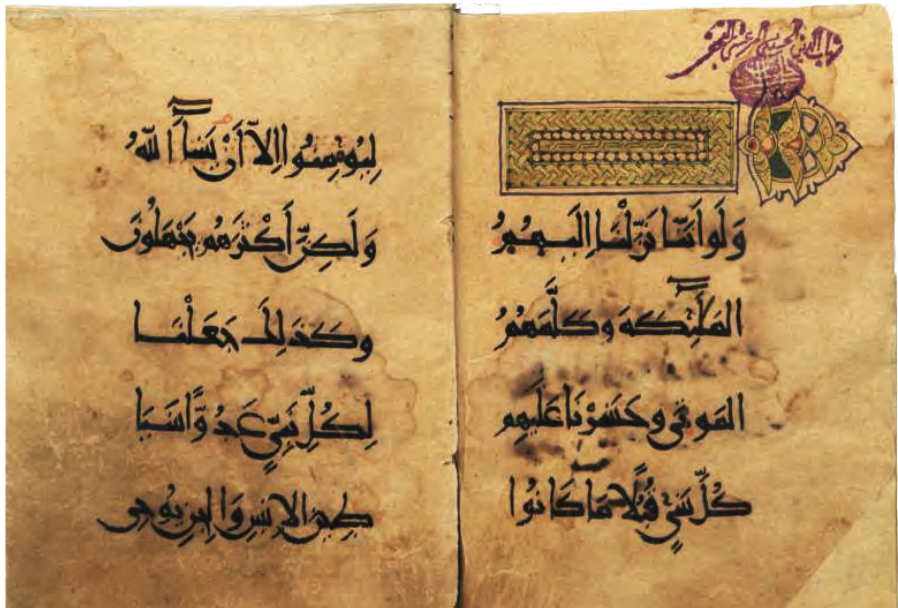 وَلَوْ أَنَّنَا نَزَّلْنَا إِلَيْهِمُ
الْمَلَٰٓئِكَةَ وَكَلَّمَهُمُ
الْمَوْتَىٰ وَحَشَرْنَا عَلَيْهِمْ
كُلَّ شَيْءٍ قُبُلًا مَّا كَانُوا
لِيُؤْمِنُوا إِلَّا أَنْ يَشَاءَ اللَّهُ
وَلَٰكِنَّ أَكْثَرَهُمْ يَجْهَلُونَ
وَكَذَٰلِكَ جَعَلْنَا
لِكُلِّ نَبِيٍّ عَدُوًّا شَيَا
طِينَ الْإِنسِ وَالْجِنِّ يُوحِي